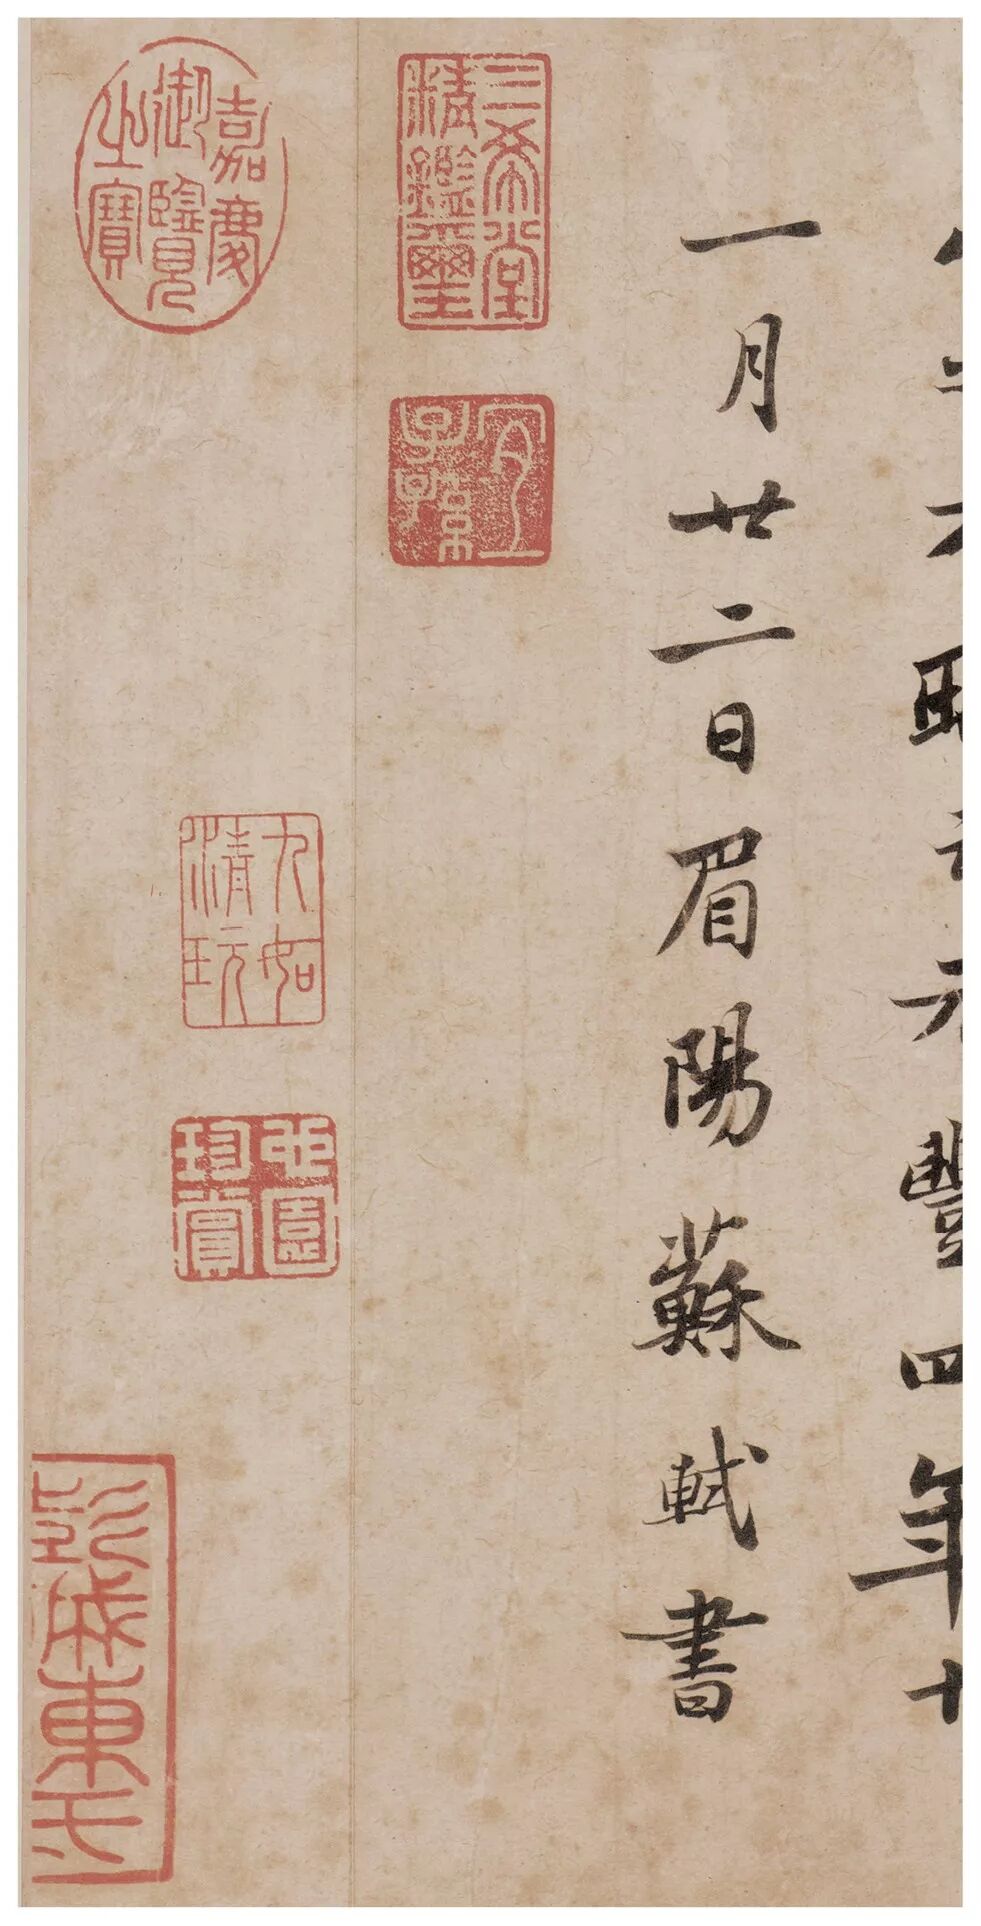 元豐四年十
一月廿二日眉陽蘇軾書
三希堂精鑑璽
宜子孫
嘉慶御覽之寶
九如清玩
珍賞